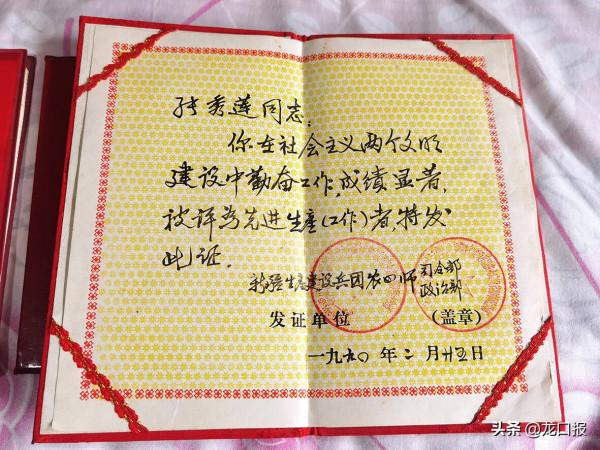 张秀莲同志：
你在社会主义两个文明
建设中勤奋工作，成绩显著，
被评为先进生产（工作）者，特发
此证．
新疆生产建设兵团农四师司令部
政治部
发证单位 （盖章）
一九九〇年二月廿五日
头条@龙口报